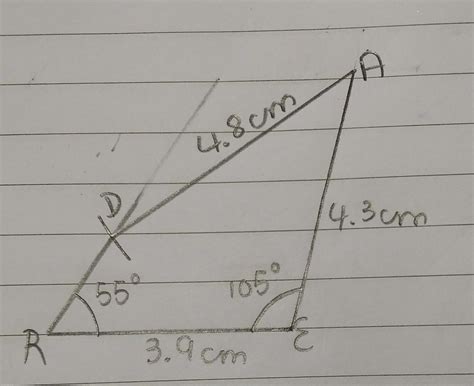 A
4.8cm
D
4.3cm
55°
105°
R
3.9cm
E